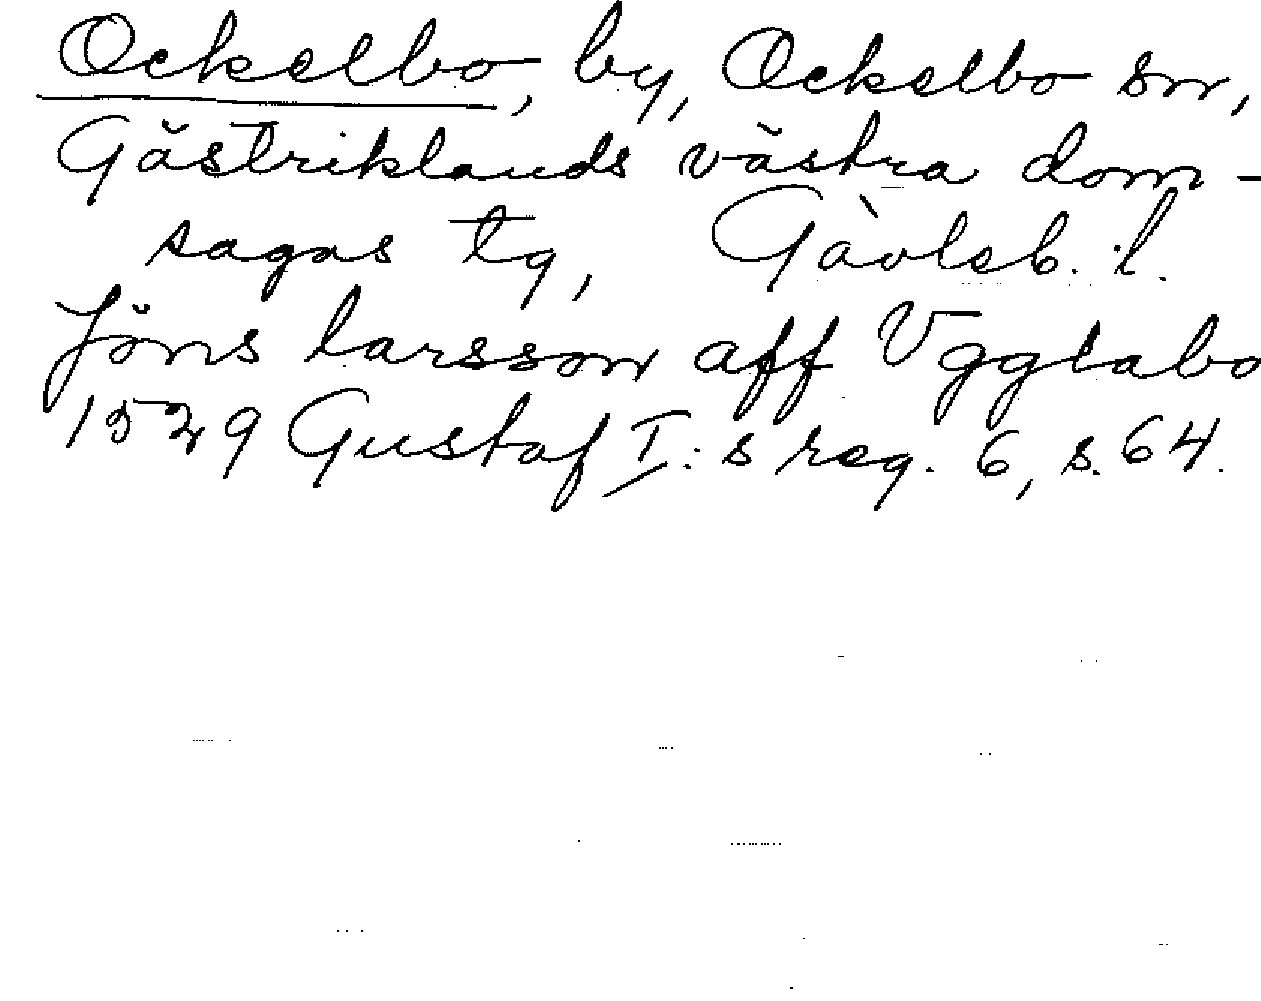 Ockelbo, by, Ockelbo sn,
Gästriklands västra dom-
sagas tg, Gävleb. l.
Jöns larsson aff Vgglabo
1529 Gustaf I:s reg. 6, s. 64.